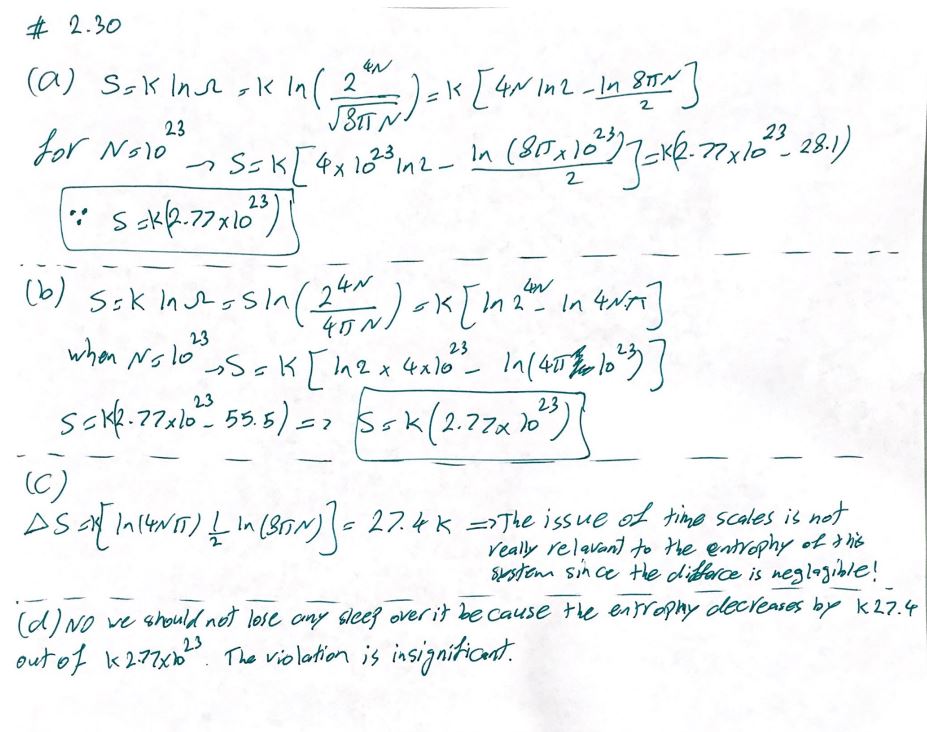 # 2.30
(a) S=K lnΩ = K ln(2^{4N}/√(8πN)) = K [4N ln2 - ln 8πN/2]
for N=10^{23} → S=K[4x10^{23} ln2 - ln (8πx10^{23})/2]=K(2.77x10^{23} - 28.1)
∵ S=K(2.77x10^{23})
(b) S=K lnΩ = S ln(2^{4N}/4πN) = K[ln 2^{4N} - ln 4Nπ]
when N=10^{23} → S=K[ln2 x 4x10^{23} - ln(4π 10^{23})]
S=K(2.77x10^{23} - 55.5) => S=K(2.77x10^{23})
(c)
ΔS=K[ln(4Nπ) - 1/2 ln(8πN)] = 27.4 K => The issue of time scales is not
really relavant to the entrophy of this
system since the differce is neglagible!
(d) NO we should not lose any sleep over it because the entrophy decreases by K27.4
out of K2.77x10^{23}. The violation is insignificant.